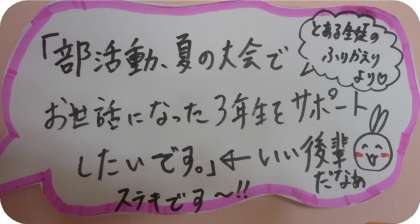 「部活動、夏の大会で
お世話になった3年生をサポート
したいです。」←いい後輩
だなぁ
ステキです〜!!
とある生徒の
ふりかえり
より♡